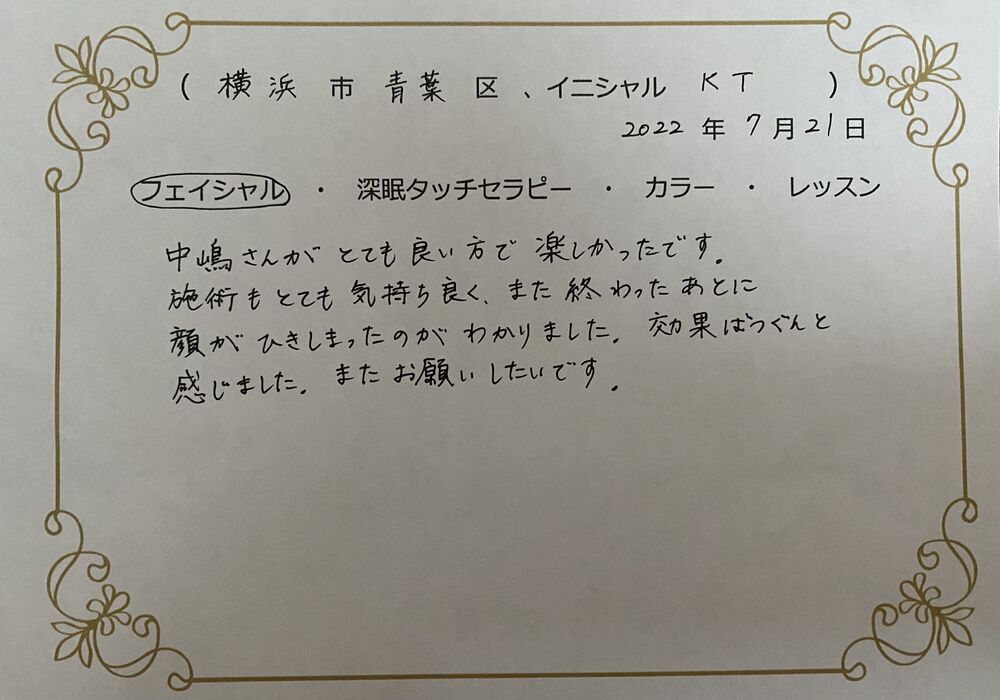 ( 横浜 市 青葉 区 、イニシャル KT )
2022 年 7 月 21 日
フェイシャル ・ 深眠タッチセラピー ・ カラー ・ レッスン
中嶋さんがとても良い方で楽しかったです。
施術もとても気持ち良く、また終わったあとに
顔がひきしまったのがわかりました。効果ばつぐんと
感じました。またお願いしたいです。